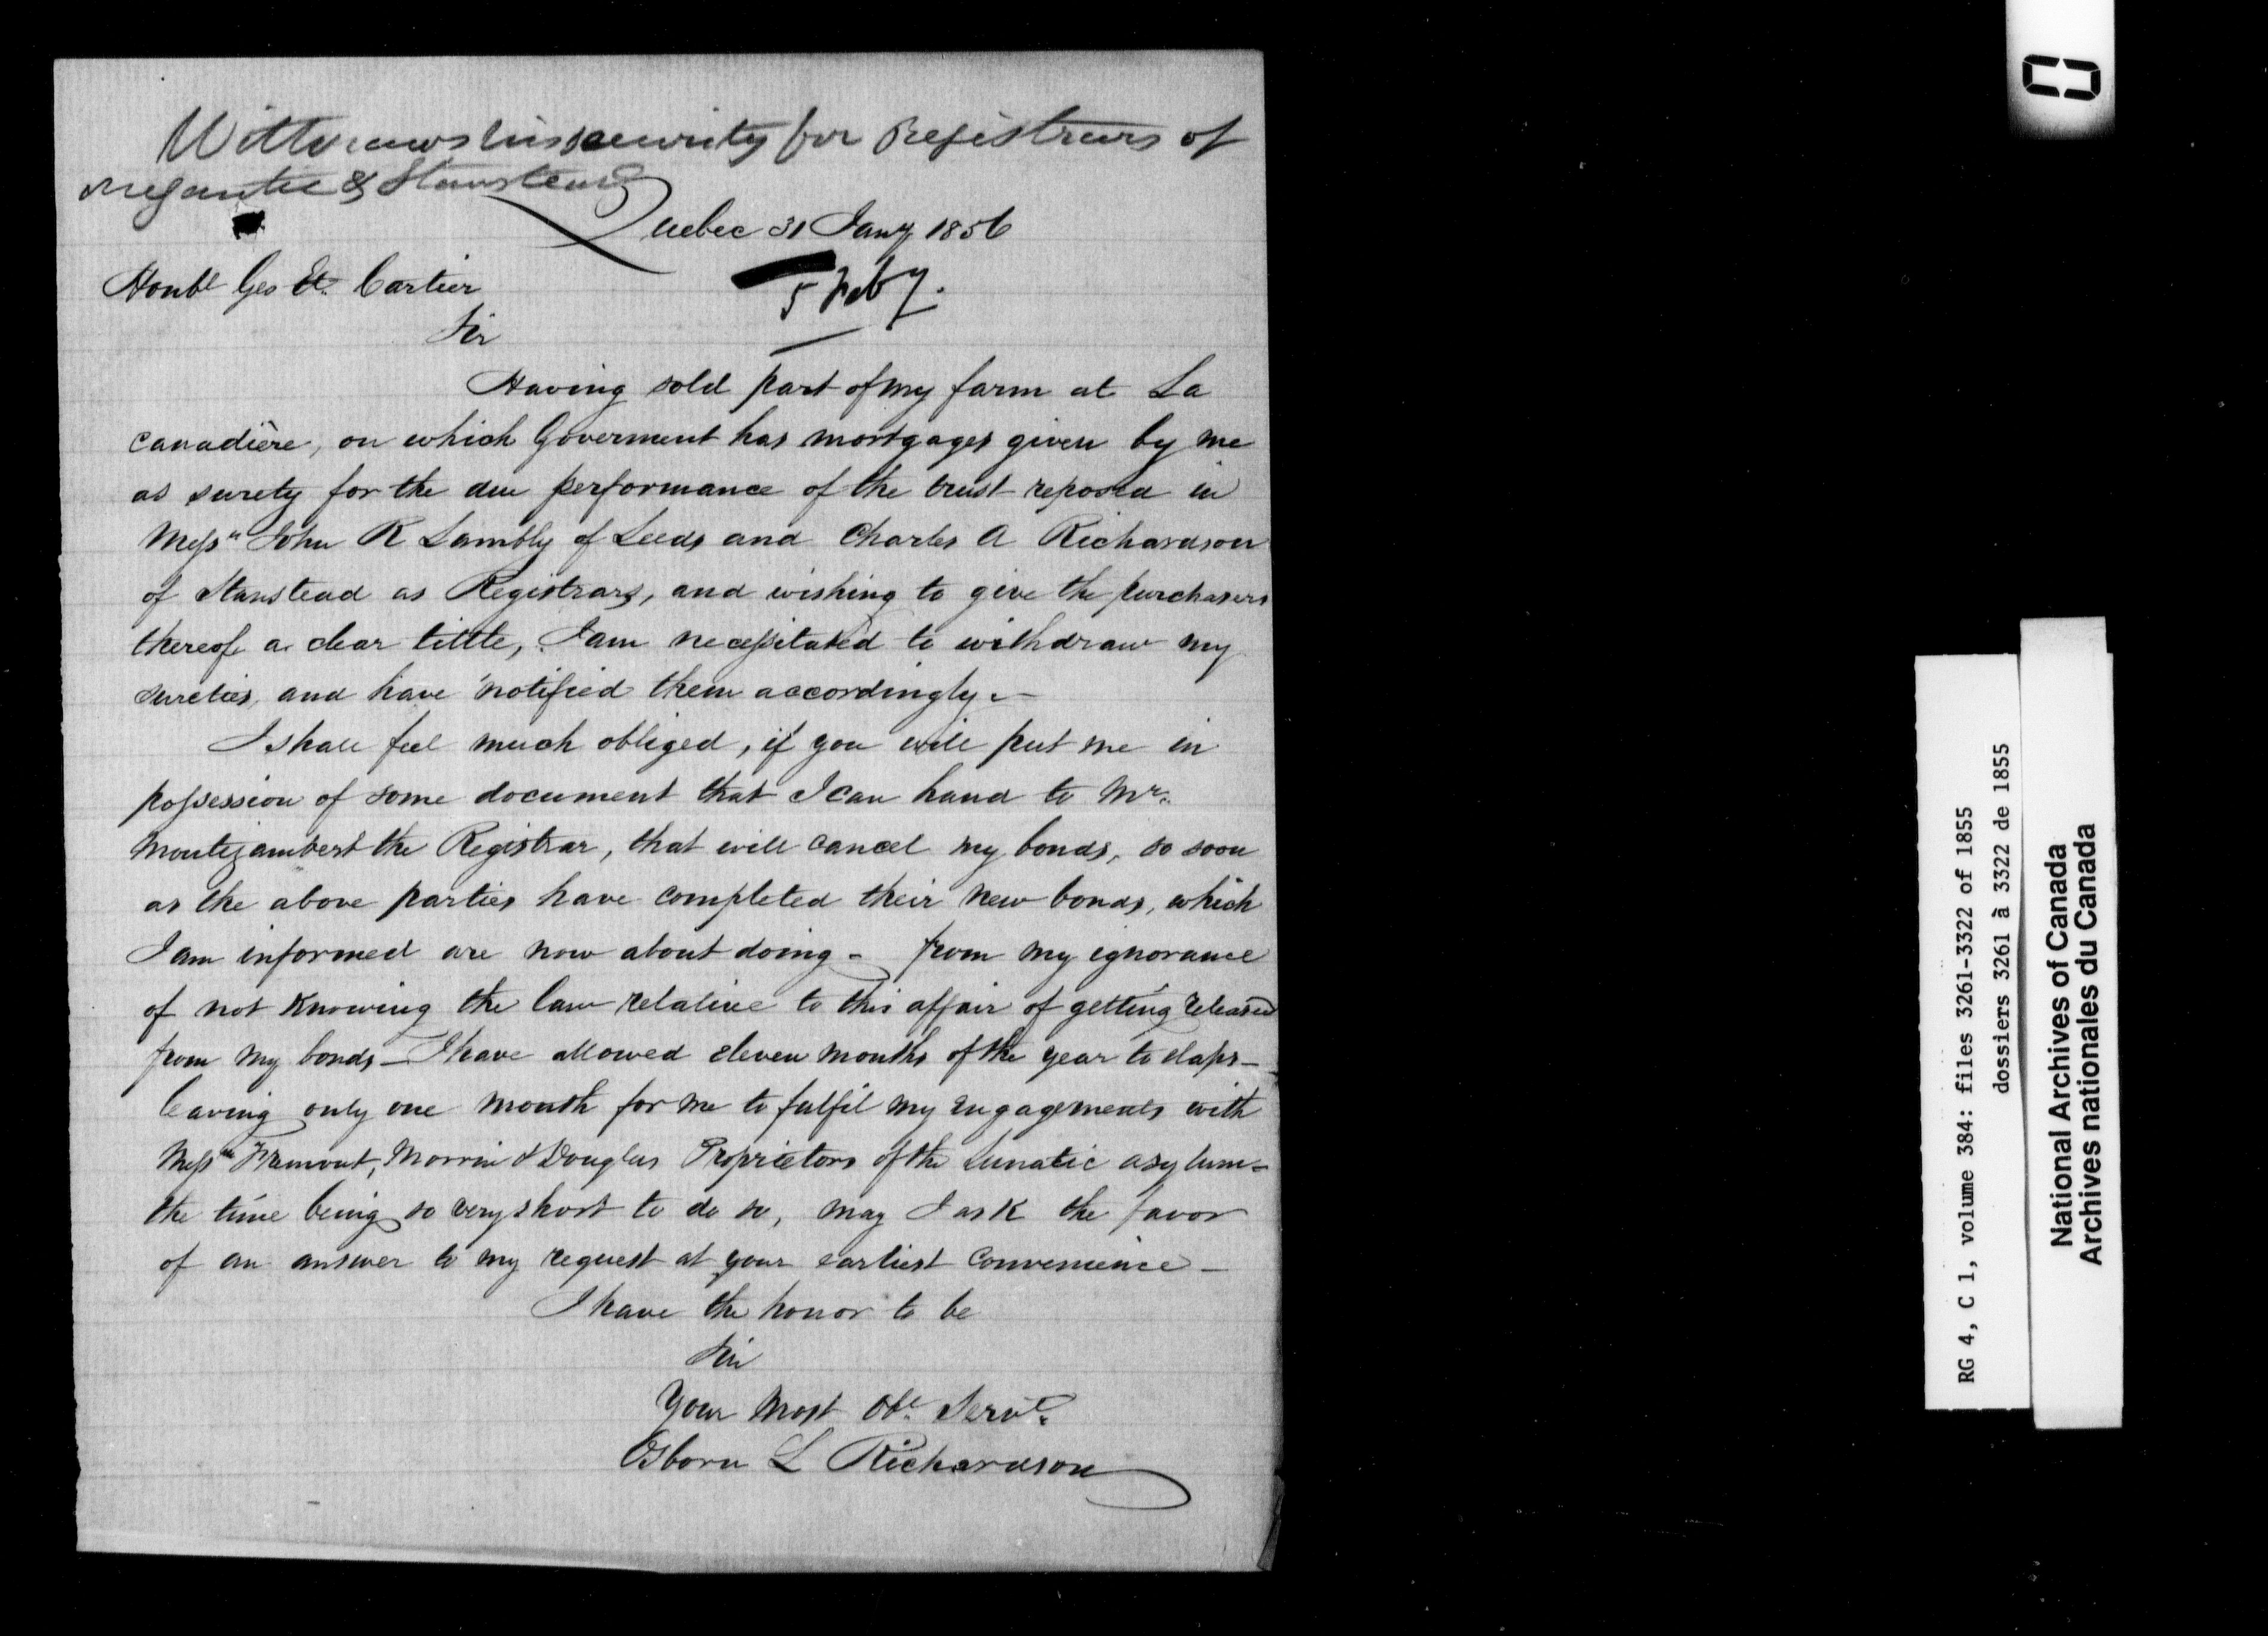 Withdraws his security for Registrars of
Megantic & Stanstead
Quebec 31 Jany 1856
5 Feby.
Honbl Geo Et. Cartier
Sir
Having sold part of my farm at La
Canadière, on which Goverment has mortgages given by me
as surety for the due performance of the trust reposed in
Messrs John R Lambly of Leeds and Charles A Richardson
of Stanstead as Registrars, and wishing to give the purchasers
thereof a clear tittle, I am necessitated to withdraw my
sureties, and have notified them accordingly. —
I shall feel much obliged, if you will put me in
possession of some document that I can hand to Mr.
Montizambert the Registrar, that will cancel my bonds, so soon
as the above parties have completed their new bonds, which
I am informed are now about doing - from my ignorance
of not knowing the law relative to this affair of getting released
from my bonds — I have allowed eleven months of the year to elaps —
leaving only one month for me to fulfil my engagements with
Messrs Fremont, Morrin & Douglas Proprietors of the Lunatic asylum -
the time being so very short to do so, may I ask the favor
of an answer to my request at your earliest convenience —
I have the honor to be
Sir
Your most Obt. Servt.
Osborn L Richardson
RG 4, C 1, volume 384: files 3261-3322 of 1855
dossiers 3261 à 3322 de 1855
National Archives of Canada
Archives nationales du Canada